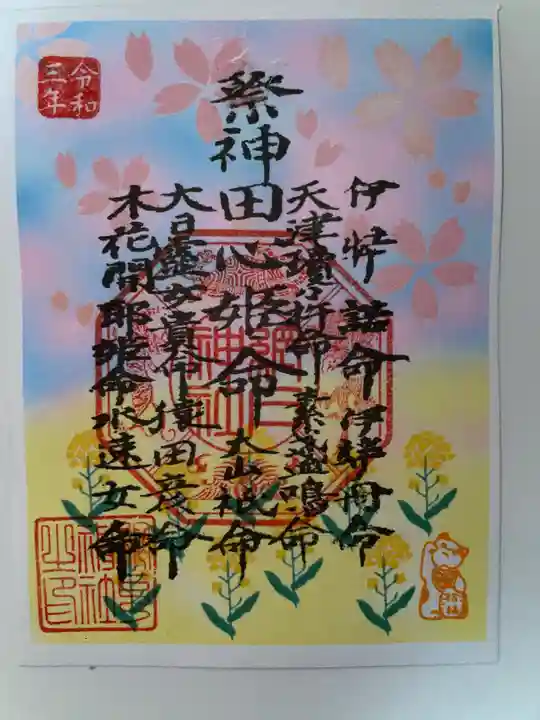 令和
三年
伊弉諾命 伊弉冊命
天津瓊々杵命 素盞鳴命
祭神 田心姫命 大山祇命
大日孁女貴命 猿田彦命
木花開耶姫命 水速女命
神社